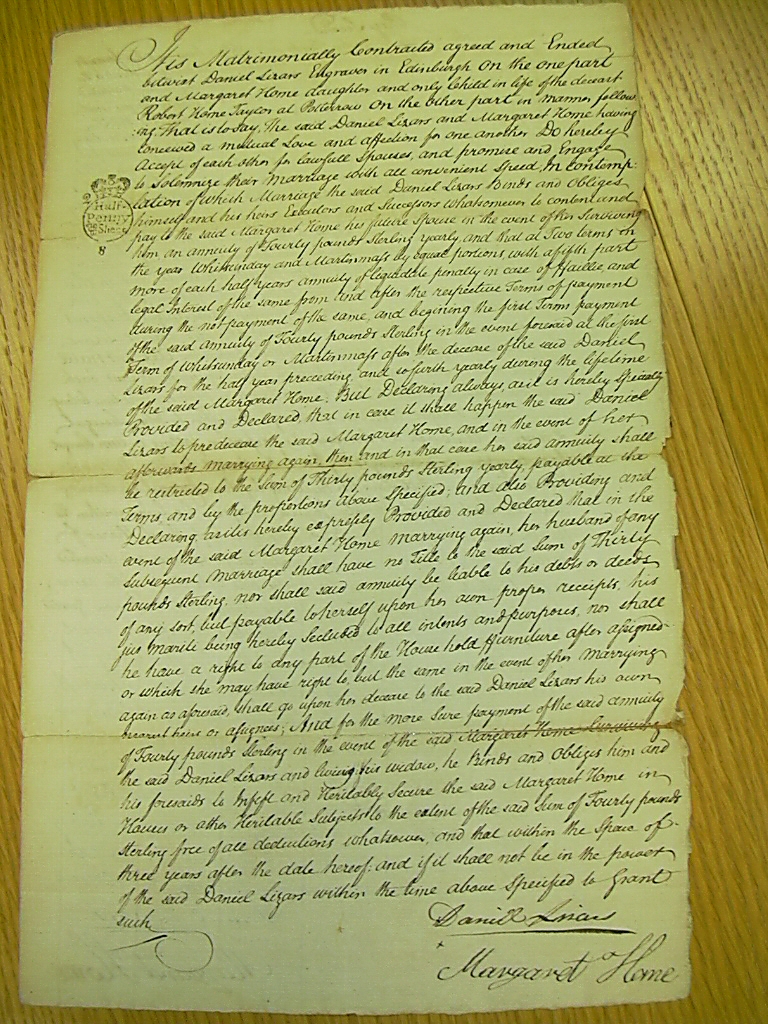 It is Matrimonially Contracted agreed and Ended
betwixt Daniel Lizars Engraver in Edinburgh On the one part
and Margaret Home daughter and only Child in life of the deceast
Robert Home Taylor at Potterrow On the other part in manner follow
:ing, That is to say, The said Daniel Lizars and Margaret Home having
conceived a mutual Love and affection for one another Do hereby
Accept of each other for lawfull Spouses, and promise and Engage
to Solemnize their Marriage with all convenient Speed; In contemp:
:lation of which Marriage the said Daniel Lizars Binds and Obliges
himself and his heirs Executors and Successors whatsomever to content and
pay to the said Margaret Home his future Spouse in the event of her Surviving
him an annuity of Fourty pounds Sterling yearly and that at Two terms in
the year Whitsunday and Martinmass by equal portions, with a fifth part
more of each half years annuity of liquidate penalty in case of ffailie, and
legal Interest of the same from and after the respective Terms of payment
during the not payment of the same, and begining the first Term payment
of the said annuity of Fourty pounds Sterling in the event foresaid at the first
Term of Whitsunday or Martinmass after the decease of the said Daniel
Lizars for the half year preceeding and so furth yearly during the lifetime
of the said Margaret Home. But Declaring always as it is hereby Specially
Provided and Declared, that in case it shall happen the said Daniel
Lizars to predecease the said Margaret Home, and in the event of her
afterwards marrying again, then and in that case her said annuity shall
be restricted to the sum of Thirty pounds Sterling yearly, payable at the
Terms and by the proportions above specified; and also Providing and
Declaring as it is hereby expressly Provided and Declared that in the
event of the said Margaret Home marrying again, her husband of any
subsequent Marriage shall have no Title to the said Sum of Thirty
pounds Sterling, nor shall said annuity be leable to his debts or deeds
of any sort, but payable to herself upon her own proper receipts, his
jus mariti being hereby Secluded to all intents and purposes, nor shall
he have a right to any part of the Household ffurniture after assigned
or which she may have right to, but the same in the event of her marrying
again as aforesaid, shall go upon her decease to the said Daniel Lizars his own
nearest heirs or assignees; And for the more Sure payment of the said annuity
of Fourty pounds Sterling in the event of the said Margaret Home Surviving
the said Daniel Lizars and living his widow, he Binds and Obliges him and
his foresaids to Infeft and Heritably Secure the said Margaret Home in
Houses or other Heritable Subjects to the extent of the said Sum of Fourty pounds
Sterling free of all deductions whatsoever, and that within the Space of
three years after the date hereof: and if it shall not be in the power
of the said Daniel Lizars within the time above Specified to Grant
such
Half
Penny
Sheet
8
Daniell Lizars
Margaret Home